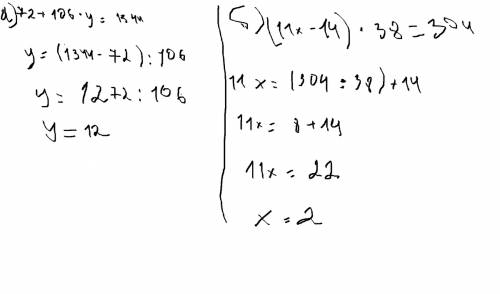 а) 72 + 106 · y = 1344
y = (1344 - 72) : 106
y = 1272 : 106
y = 12
б) (11x - 14) · 38 = 304
11x = (304 : 38) + 14
11x = 8 + 14
11x = 22
x = 2